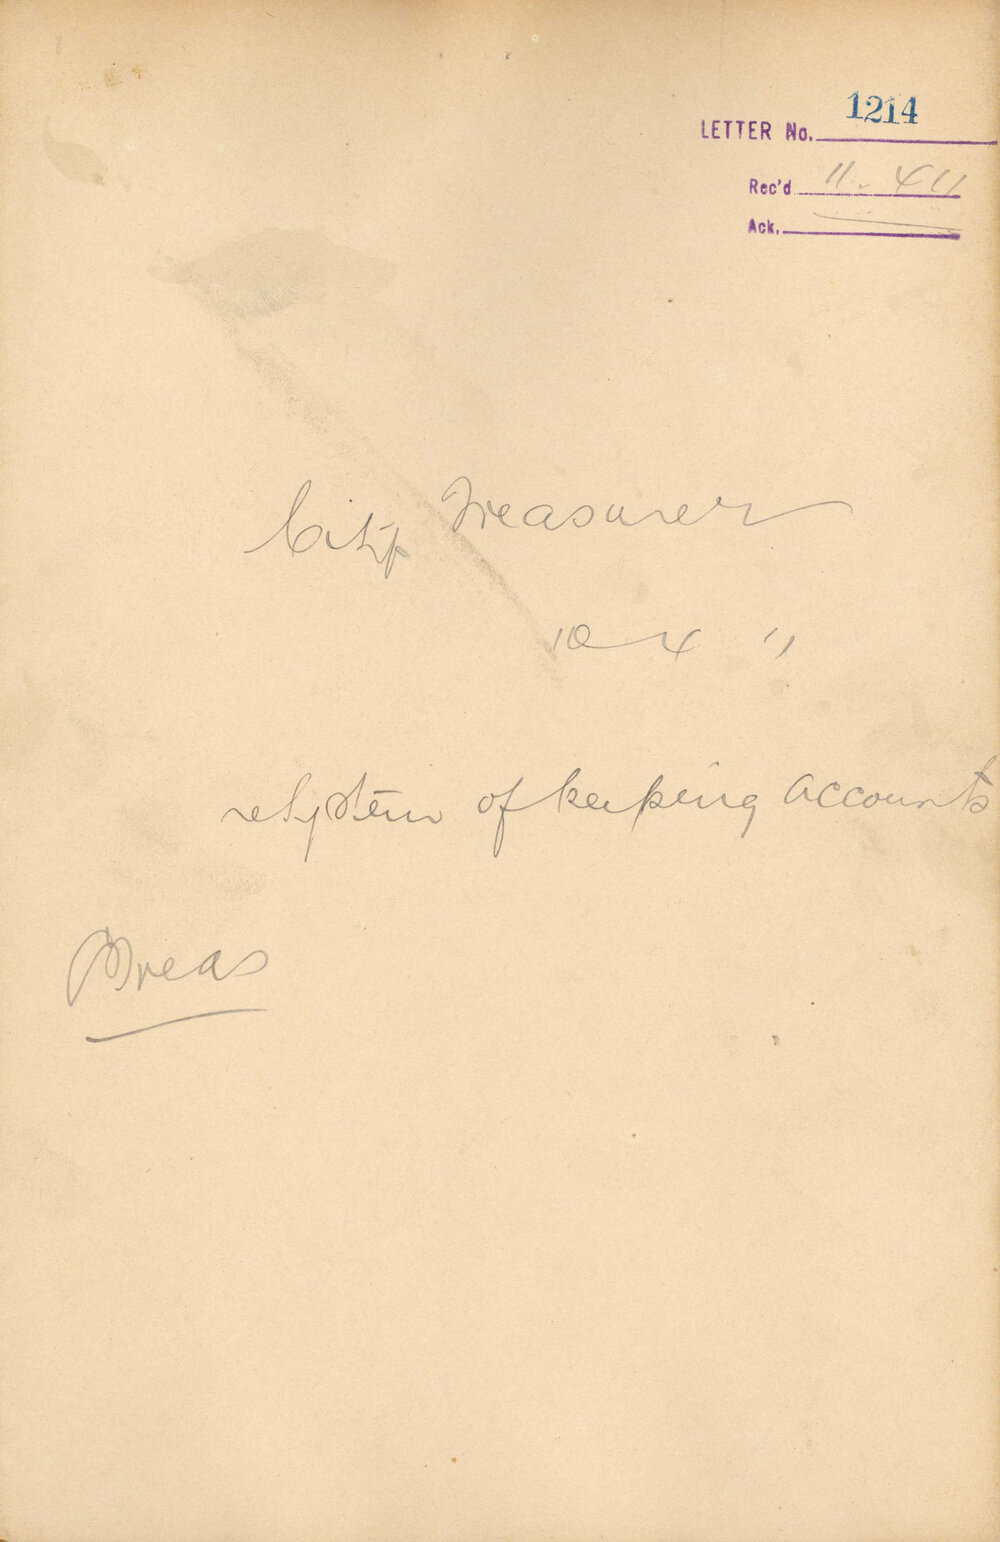 1214
LETTER No.
Rec'd 11. 4 11
Ack.
City Treasurer
10 4 11
re System of keeping accounts
Treas